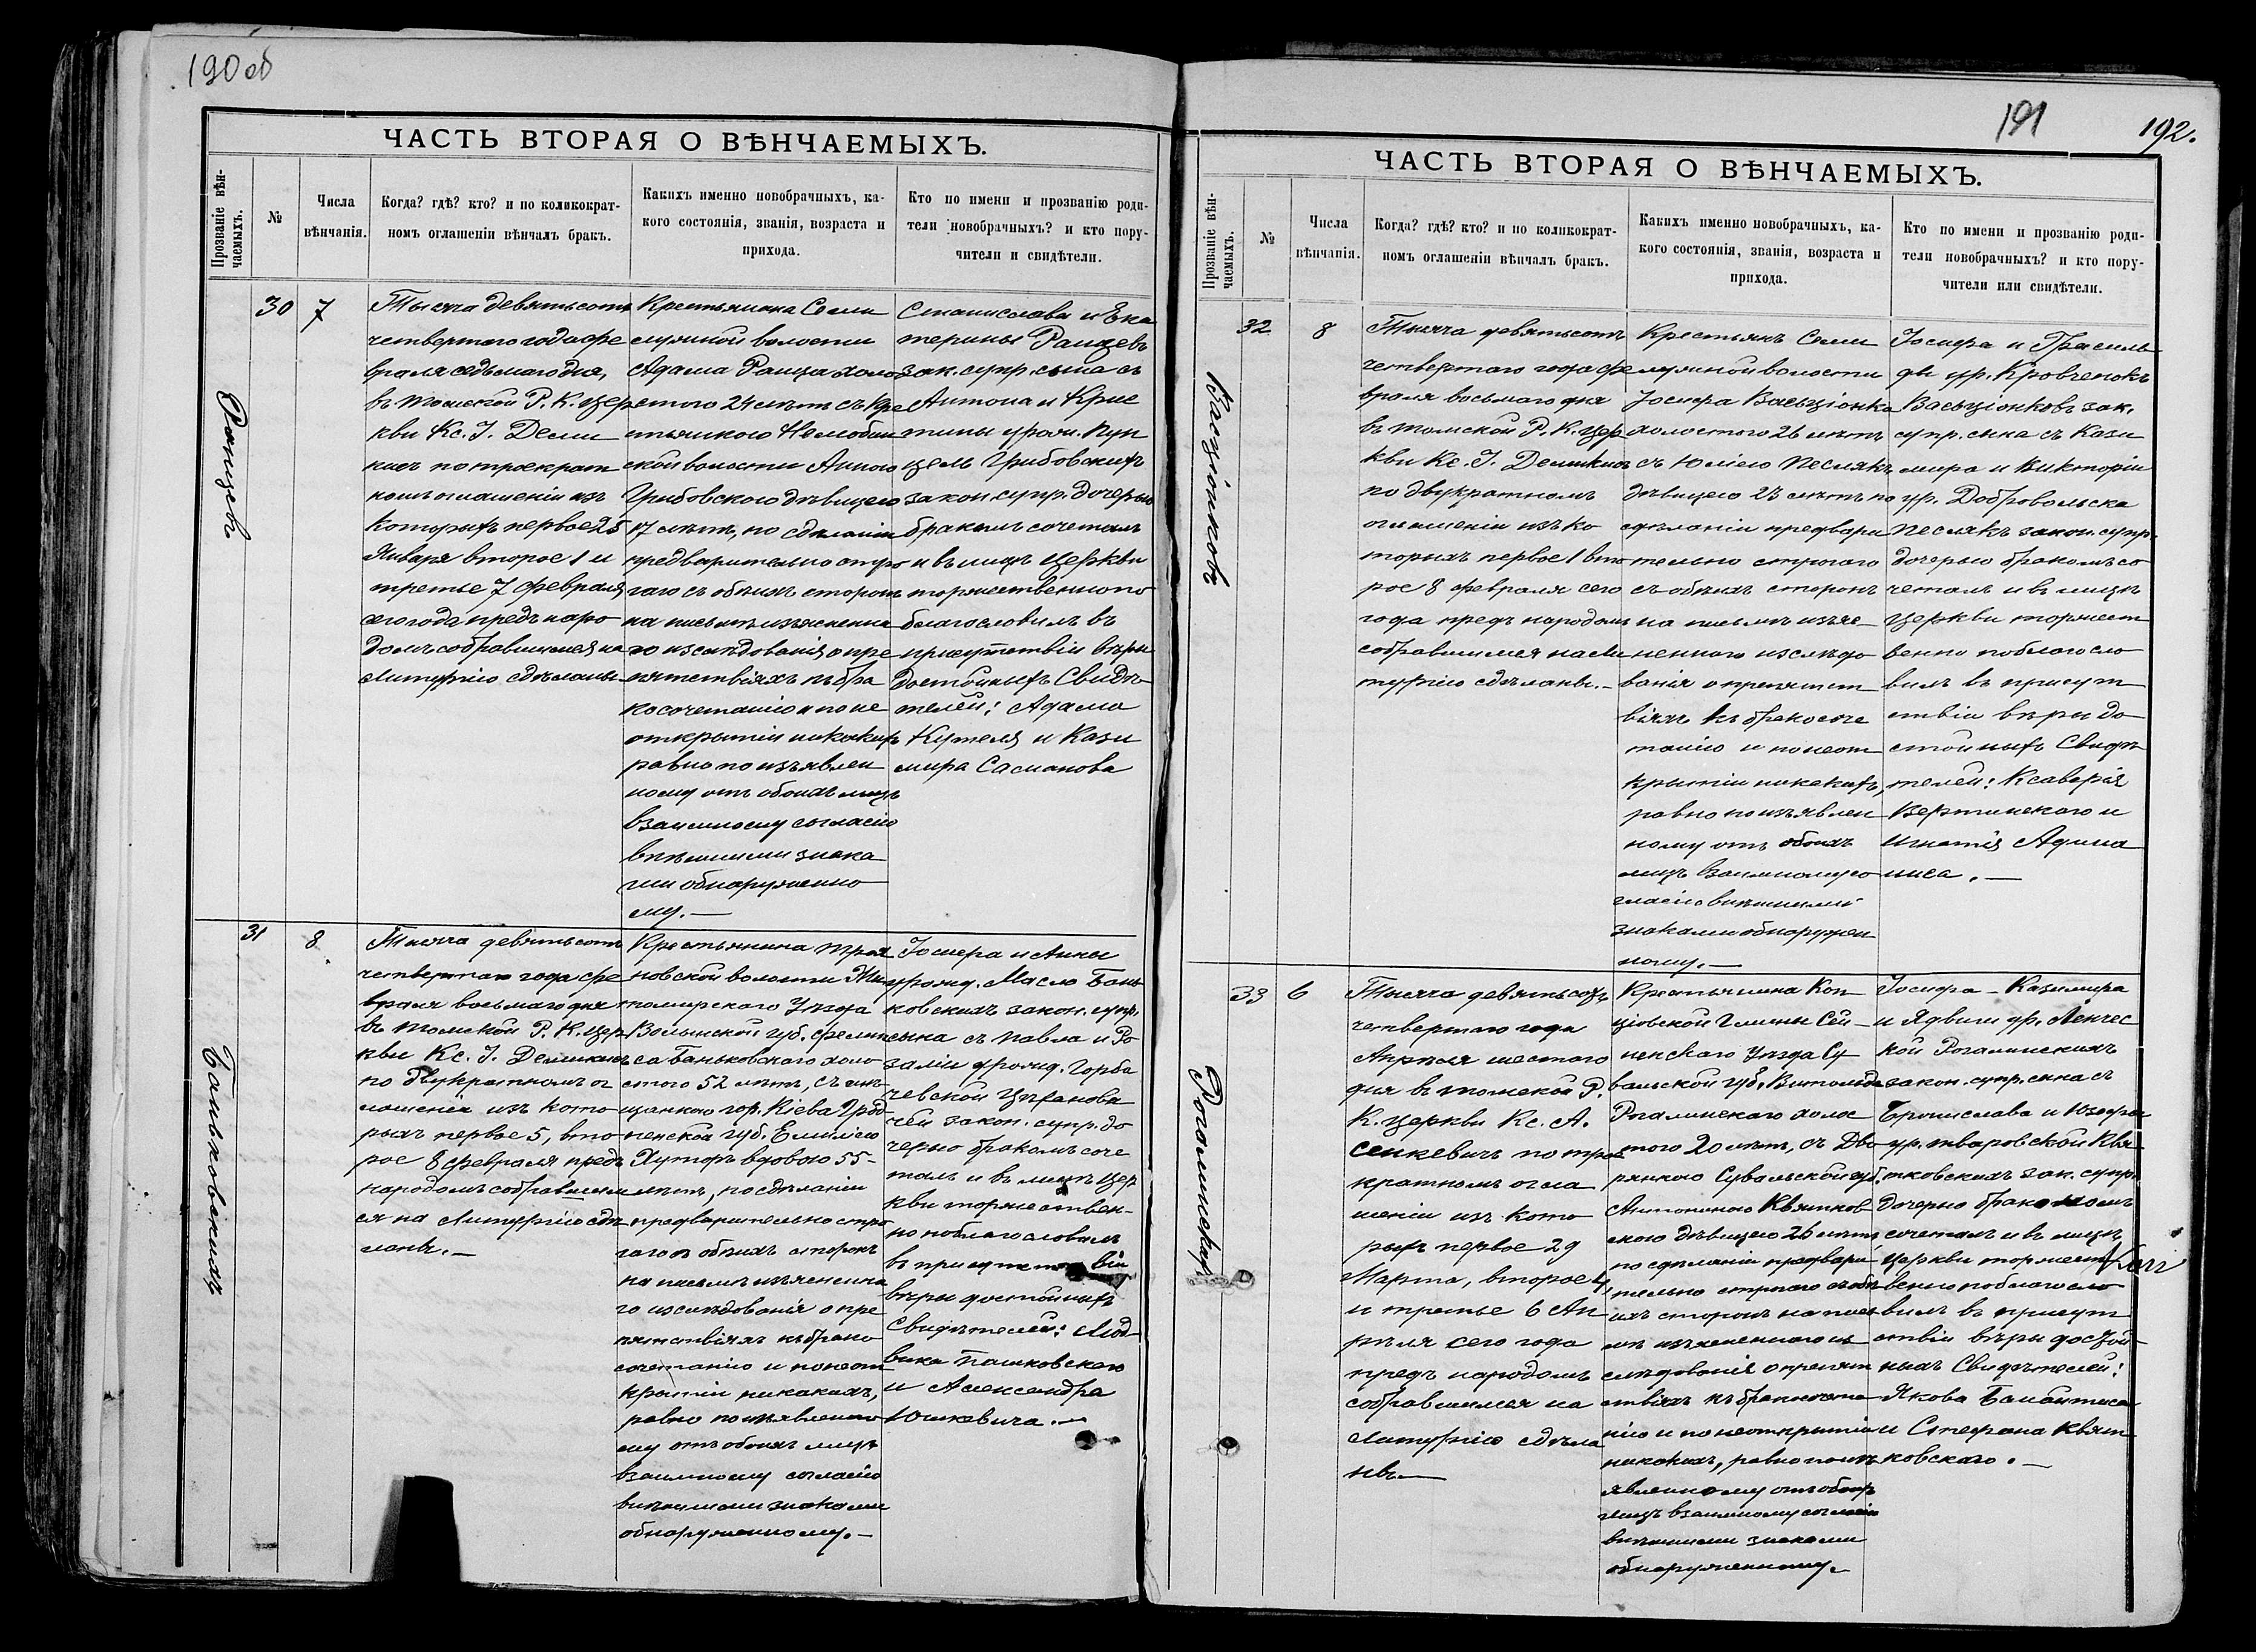 190 об
ЧАСТЬ ВТОРАЯ О ВѢНЧАЕМЫХЪ.
Прозваніе вѣн-
чаемыхъ.
№
Числа
вѣнчанія.
Когда? гдѣ? кто? и по коликократ-
номъ оглашеніи вѣнчалъ бракъ.
Какихъ именно новобрачныхъ, ка-
кого состоянія, званія, возраста и
прихода.
Кто по имени и прозванію роди-
тели новобрачныхъ? и кто пору-
чители и свидѣтели.
Ранцевъ
30
7
Тысяча девятьсотъ
четвертаго года фе
враля седьмаго дня,
въ Томской Р. К. цер
кви Кс. І. Деми
кисъ по троекрат
номъ оглашеніи изъ
которыхъ первое 25
Января второе 1 и
третье 7 февраля
сего года предъ наро
домъ собравшимся на
Литургію сдѣланы.
Крестьянина Семи
лужной волости
Адама Ранца холо
стого 24 лѣтъ съ кре
стьянкою Нелюбин
ской волости Анною
Грибовскою дѣвицею
17 лѣтъ, по сдѣланіи
предварительно стро
гаго съ обѣихъ сторонъ
на письмѣ изъясненна
го изслѣдованія о пре
пятствіяхъ къ бра
косочетанію и по не
открытіи никакихъ
равно по изъявлен
ному отъ обоихъ лицъ
взаимному согласію
внѣшними знака
ми обнаруженно
му.—
Станислава и Ека
терины Ранцевъ
зак. супр. сына съ
Антона и Крис
тины урож. Пун
цель Грибовскихъ
закон. супр. дочерью
бракомъ сочеталъ
и въ лицѣ церкви
торжественно по
благословилъ въ
присутствіи вѣры
достойныхъ Свидѣ-
телей: Адама
Кутеля и Кази
мира Сасманова
Баньковскихъ
31
8
Тысяча девятьсотъ
четвертаго года фе
враля восьмаго дня
въ Томской Р. К. цер
кви Кс. І. Демикисъ
по двукратномъ ог
лашеніи изъ кото
рыхъ первое 5, вто
рое 8 февраля предъ
народомъ собравшим
ся на Литургію сдѣ
ланы.—
Крестьянина Троя
новской волости Жи
томирскаго Уѣзда
Волынской губ. Фелик
са Баньковскаго холо
стого 52 лѣтъ, съ мѣ-
щанкою гор. Кіева Грод-
ненской губ. Емиліею
Хуторъ вдовою 55-
лѣтъ, по сдѣланіи
предварительно стро
гаго съ обѣихъ сторонъ
на письмѣ изъясненна
го изслѣдованія о пре
пятствіяхъ къ брако
сочетанію и по неот
крытіи никакихъ,
равно по изъявленно
му отъ обоихъ лицъ
взаимному согласію
внѣшними знаками
обнаруженному.—
Іосифа и Анны
урожд. Масло Бань
ковскихъ закон. супр.
сына съ Павла и Ро
заліи урожд. Горба
чевской
закон. супр. до
черью бракомъ соче
талъ и въ лицѣ цер
кви торжествен-
но поблагословилъ
въ присутствіи
вѣры достойныхъ
Свидѣтелей: Люд-
вика Пашковскаго
и Александра
Юшкевича.—
191
192.
ЧАСТЬ ВТОРАЯ О ВѢНЧАЕМЫХЪ.
Прозваніе вѣн-
чаемыхъ.
№
Числа
вѣнчанія.
Когда? гдѣ? кто? и по коликократ-
номъ оглашеніи вѣнчалъ бракъ.
Какихъ именно новобрачныхъ, ка-
кого состоянія, званія, возраста и
прихода.
Кто по имени и прозванію роди-
тели новобрачныхъ? и кто пору-
чители или свидѣтели.
Васьціонковъ
32
8
Тысяча девятьсотъ
четвертаго года фе
враля восьмаго дня
въ Томской Р. К. цер
кви Кс. І. Демикисъ
по двукратномъ
оглашеніи изъ ко
торыхъ первое 1 вто
рое 8 февраля сего
года предъ народомъ
собравшимся на Ли
тургію сдѣланы.—
Крестьянъ Семи
лужной волости
Іосифа Васьціонка
холостого 26 лѣтъ
съ Юліею Песлякъ
дѣвицею 23 лѣтъ по
сдѣланіи предвари
тельно строгаго
съ обѣихъ сторонъ
на письмѣ изъяс-
неннаго изслѣдо
ванія о препятст
віяхъ къ бракосоче
танію и по неот
крытіи никакихъ,
равно по изъявлен
ному отъ обоихъ
лицъ взаимному со
гласію внѣшними
знаками обнаружен
ному.—
Іосифа и Грасиль
ды ур. Кровченокъ
Васьціонковъ зак.
супр. сына съ Кази
мира и Викторіи
ур. Добровольска
Песлякъ закон. супр.
дочерью бракомъ со
четалъ и въ лицѣ
церкви торжест
венно поблагосло
вилъ въ присут
ствіи вѣры до
стойныхъ Свидѣ
телей: Ксаверія
Вержтинскаго и
Игнатія Адина
ниса.—
Рогалинскихъ
33
6
Тысяча девятьсотъ
четвертаго года
Апрѣля шестого
дня въ Томской Р.
К. церкви Кс. А.
Сенкевичъ по трое
кратномъ огла
шеніи изъ кото
рыхъ первое 29
Марта, второе 4,
и третье 6 Ап
рѣля сего года
предъ народомъ
собравшимся на
Литургію сдѣла
ны.—
Крестьянина Коп
ціовской Гмины Сей-
ненскаго Уѣзда Су
вальской губ. Витольда
Рогалинскаго холос
того 20 лѣтъ, съ Дво
рянкою Сувальской губ.
Антониною Квятков
скою дѣвицею 26 лѣтъ
по сдѣланіи предвари
тельно строгаго съ обѣ
ихъ сторонъ на пись
мѣ изъясненнаго из
слѣдованія о препят
ствіяхъ къ бракосочета
нію и по неоткрытіи
никакихъ, равно по изъ
явленному отъ обоихъ
лицъ взаимному согласію
внѣшними знаками
обнаруженному.
Іосифа-Казимира
и Ядвиги ур. Ленчес
кой Рогалинскихъ
закон. супр. сына съ
Бронислава и Юзефы
ур. Тваровской Квя-
тковскихъ зак. супр.
дочерью бракомъ
сочеталъ и въ лицѣ
церкви торжест
венно поблагосло
вилъ въ присут
ствіи вѣры достой-
ныхъ Свидѣтелей:
Якова
и Стефана Квят
ковскаго.—